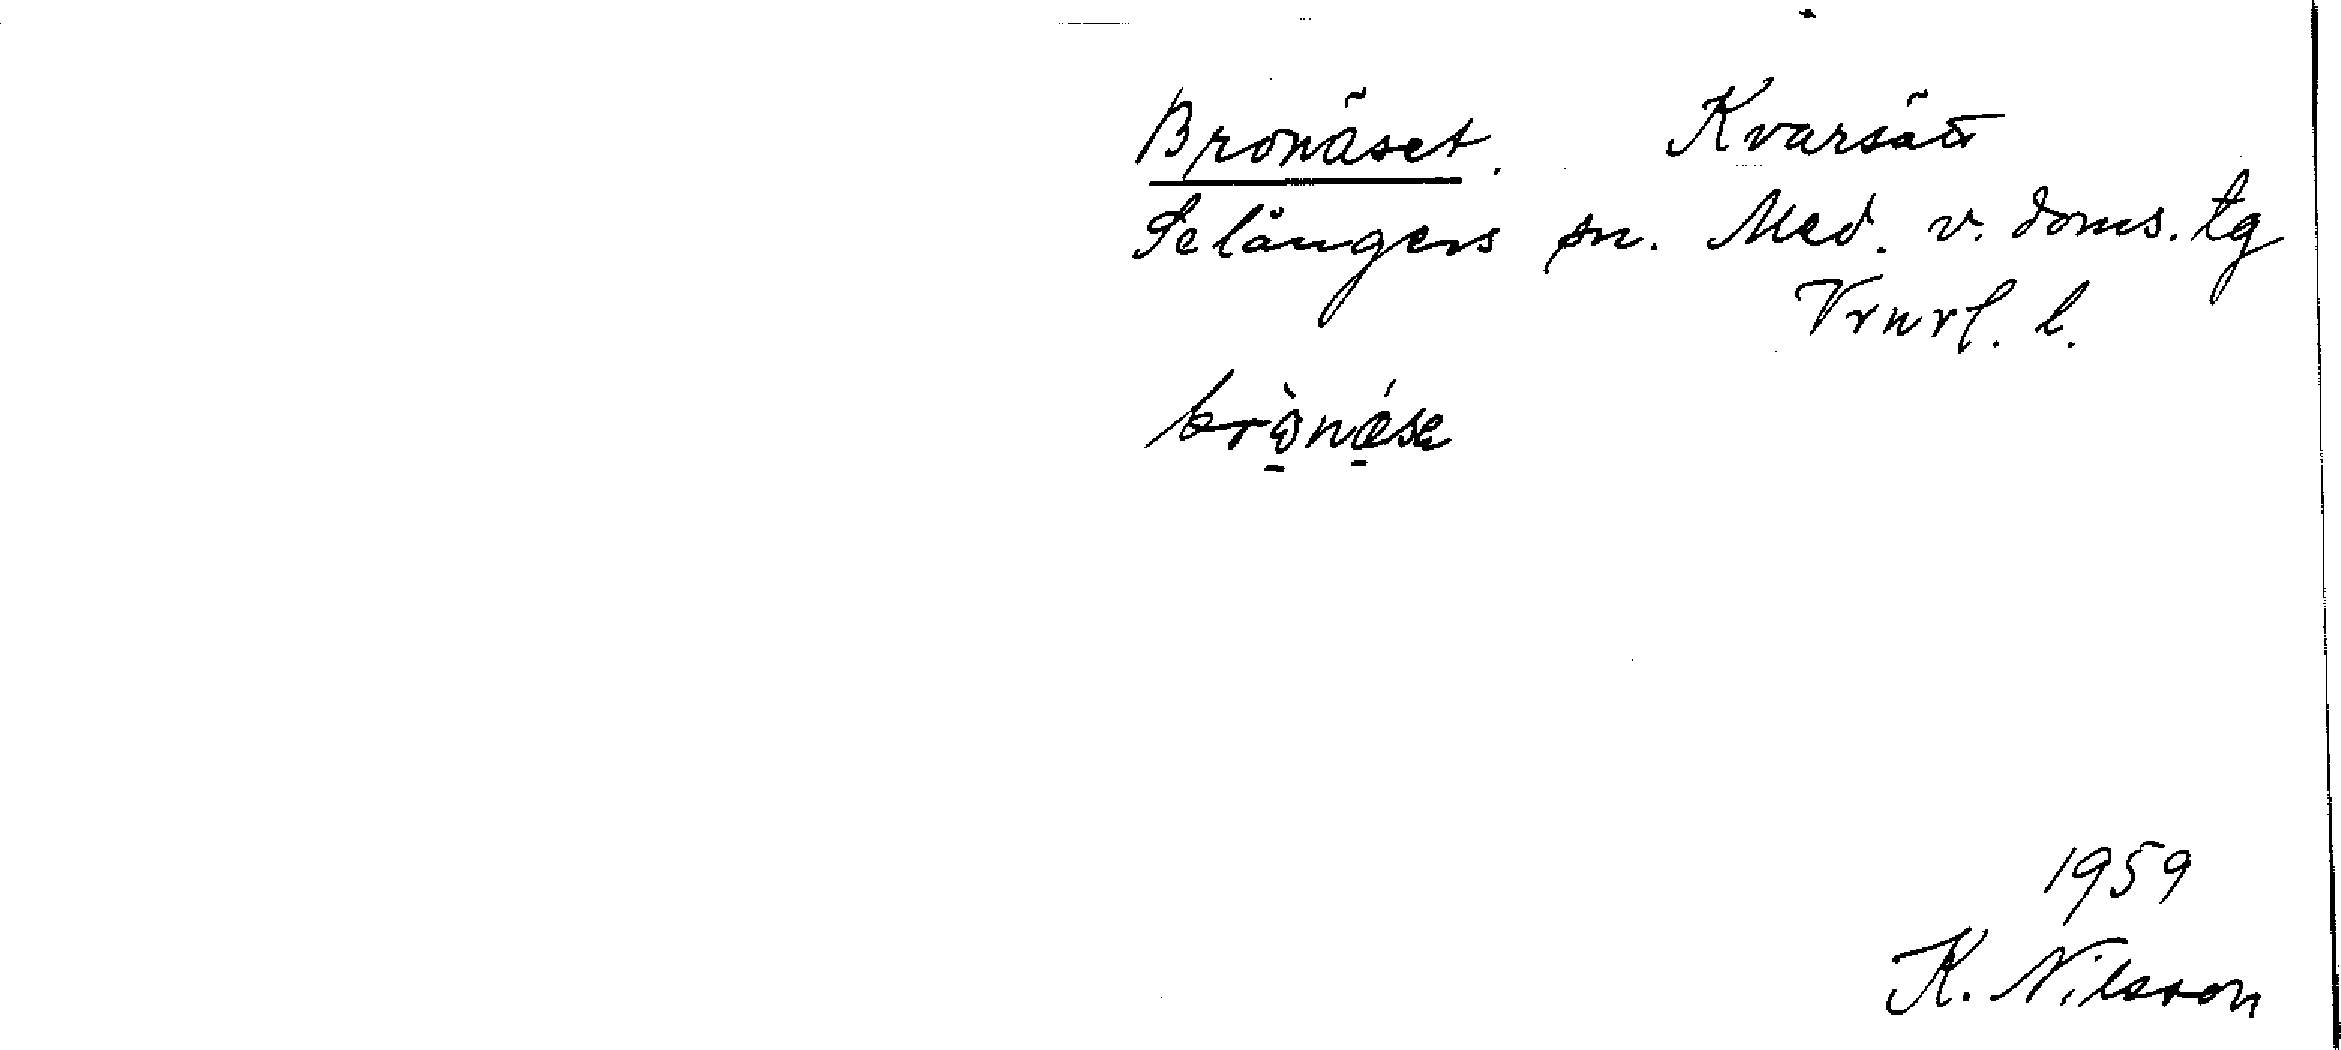 Bronäset. Kvarsätt
Selångers sn. Med. v. doms. tg
Vrnrl. l.
brò̱nǽ̱se
1959
K. Nilsson